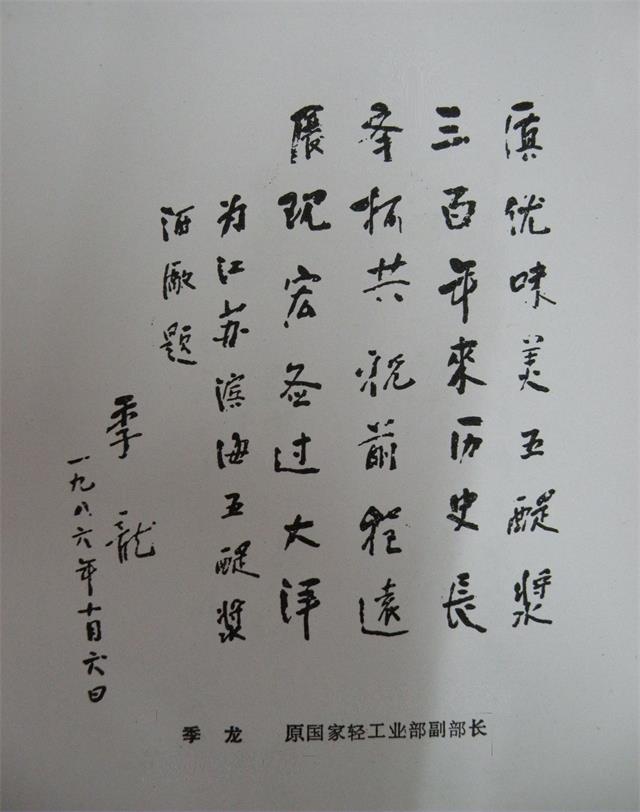 优味美五醍漿
三百年來历史長
举杯共祝前程遠
现宏图过大洋
为江苏滨海五醍漿
酒厰题
季龍
一九八六年十月六日
季龙 原国家轻工业部副部长